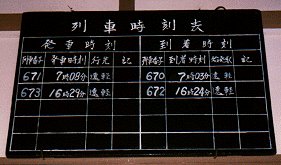 列車時刻表
発車時刻 到着時刻
列車番号 発車時刻 行先 記 列車番号 到着時刻 始発駅 記
671 7時08分 遠軽 670 7時03分 遠軽
673 16時29分 遠軽 672 16時24分 遠軽